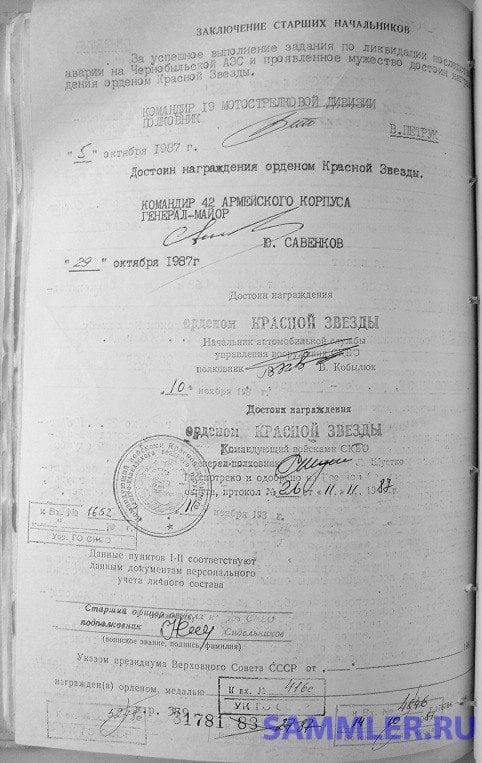 ЗАКЛЮЧЕНИЕ СТАРШИХ НАЧАЛЬНИКОВ
За успешное выполнение задания по ликвидации
аварии на Чернобыльской АЭС и проявленное мужество достоин
дения орденом Красной Звезды.
КОМАНДИР 19 МОТОСТРЕЛКОВОЙ ДИВИЗИИ
ПОЛКОВНИК
В.ПЕТРУК
"5" октября 1987 г.
Достоин награждения орденом Красной Звезды.
КОМАНДИР 42 АРМЕЙСКОГО КОРПУСА
ГЕНЕРАЛ-МАЙОР
Ю. САВЕНКОВ
"29" октября 1987г
Достоин награждения
орденом КРАСНОЙ ЗВЕЗДЫ
Начальник автомобильной службы
управления вооружения СКВО
полковник В. Кобылюк
"10" ноября 198
Достоин награждения
орденом КРАСНОЙ ЗВЕЗДЫ
Командующий войсками СКВО
генерал-полковник Шустко
Рассмотрено и одобрено на
округа, протокол № от «11» 11. 1987
"11" ноября 198 г.
к Вх. № 1652
Упр. ГО СКВО
Данные пунктов I-II соответствуют
данным документам персонального
учета личного состава
Старший офицер СКВО
подполковник Сидельников
(воинское звание, подпись, фамилия)
Указом президиума Верховного Совета СССР от
награжден(в) орденом, медалью
К вх. № 416с
31781 83
4846
SAMMLER.RU